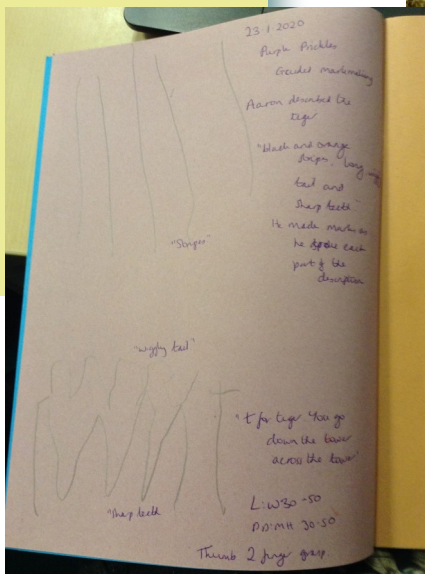 23-1-2020
Purple Prickles
Guided markmaking
Aaron described the
tiger
"black and orange
stripes, long wiggly
tail and
sharp teeth"
He made marks as
he spoke each
part of the
description
"Stripes"
"wiggly tail"
"t for tiger You go
down the tower
across the tower"
"sharp teeth
L:W30-50
PD:MH 30-50
Thumb 2 finger grasp